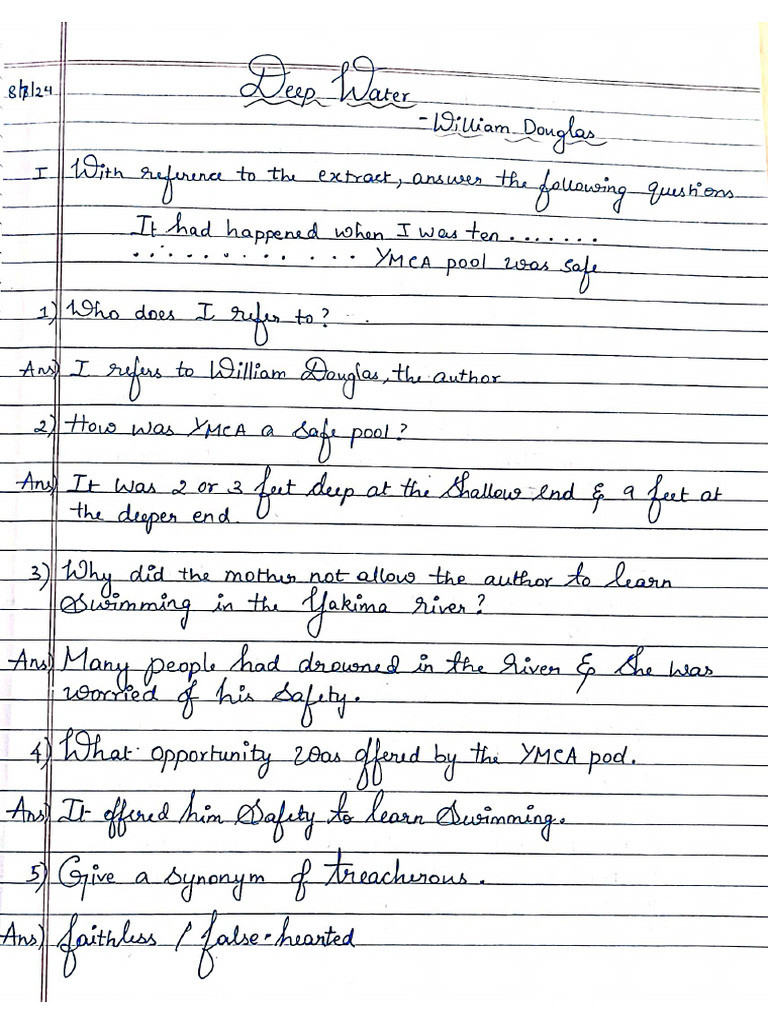 8/8/24
Deep Water
- William Douglas
I With reference to the extract, answer the following questions
It had happened when I was ten .......
............. YMCA pool was safe
1) Who does I refer to?
Ans) I refers to William Douglas, the author
2) How was YMCA a safe pool?
Ans) It was 2 or 3 feet deep at the shallow end & 9 feet at
the deeper end.
3) Why did the mother not allow the author to learn
swimming in the Yakima river?
Ans) Many people had drowned in the river & she was
worried of his safety.
4) What opportunity was offered by the YMCA pool.
Ans) It offered him safety to learn swimming.
5) Give a synonym of treacherous.
Ans) faithless / false-hearted